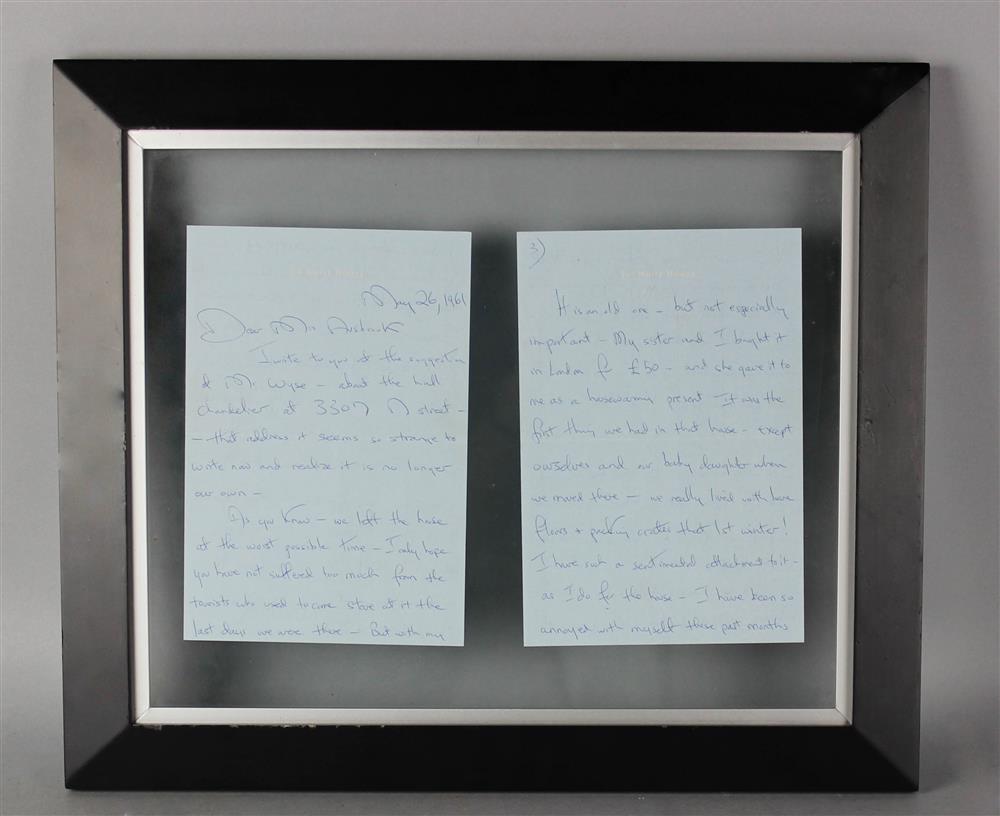 The White House
May 26, 1961
Dear Mr Ausbrook
I write to you at the suggestion
of Mr. Wyse – about the hall
chandelier at 3307 N street –
– that address it seems so strange to
write now and realize it is no longer
our own –
As you know – we left the house
at the worst possible time – I only hope
you have not suffered too much from the
tourists who used to come stare at it the
last days we were there – But with my
3)
The White House
It is an old one – but not especially
important – My sister and I bought it
in London for £50 – and she gave it to
me as a housewarming present – It was the
first thing we had in that house – except
ourselves and our baby daughter when
we moved there – we really lived with bare
floors + packing crates that 1st winter!
I have such a sentimental attachment to it –
as I do for the house – I have been so
annoyed with myself these past months